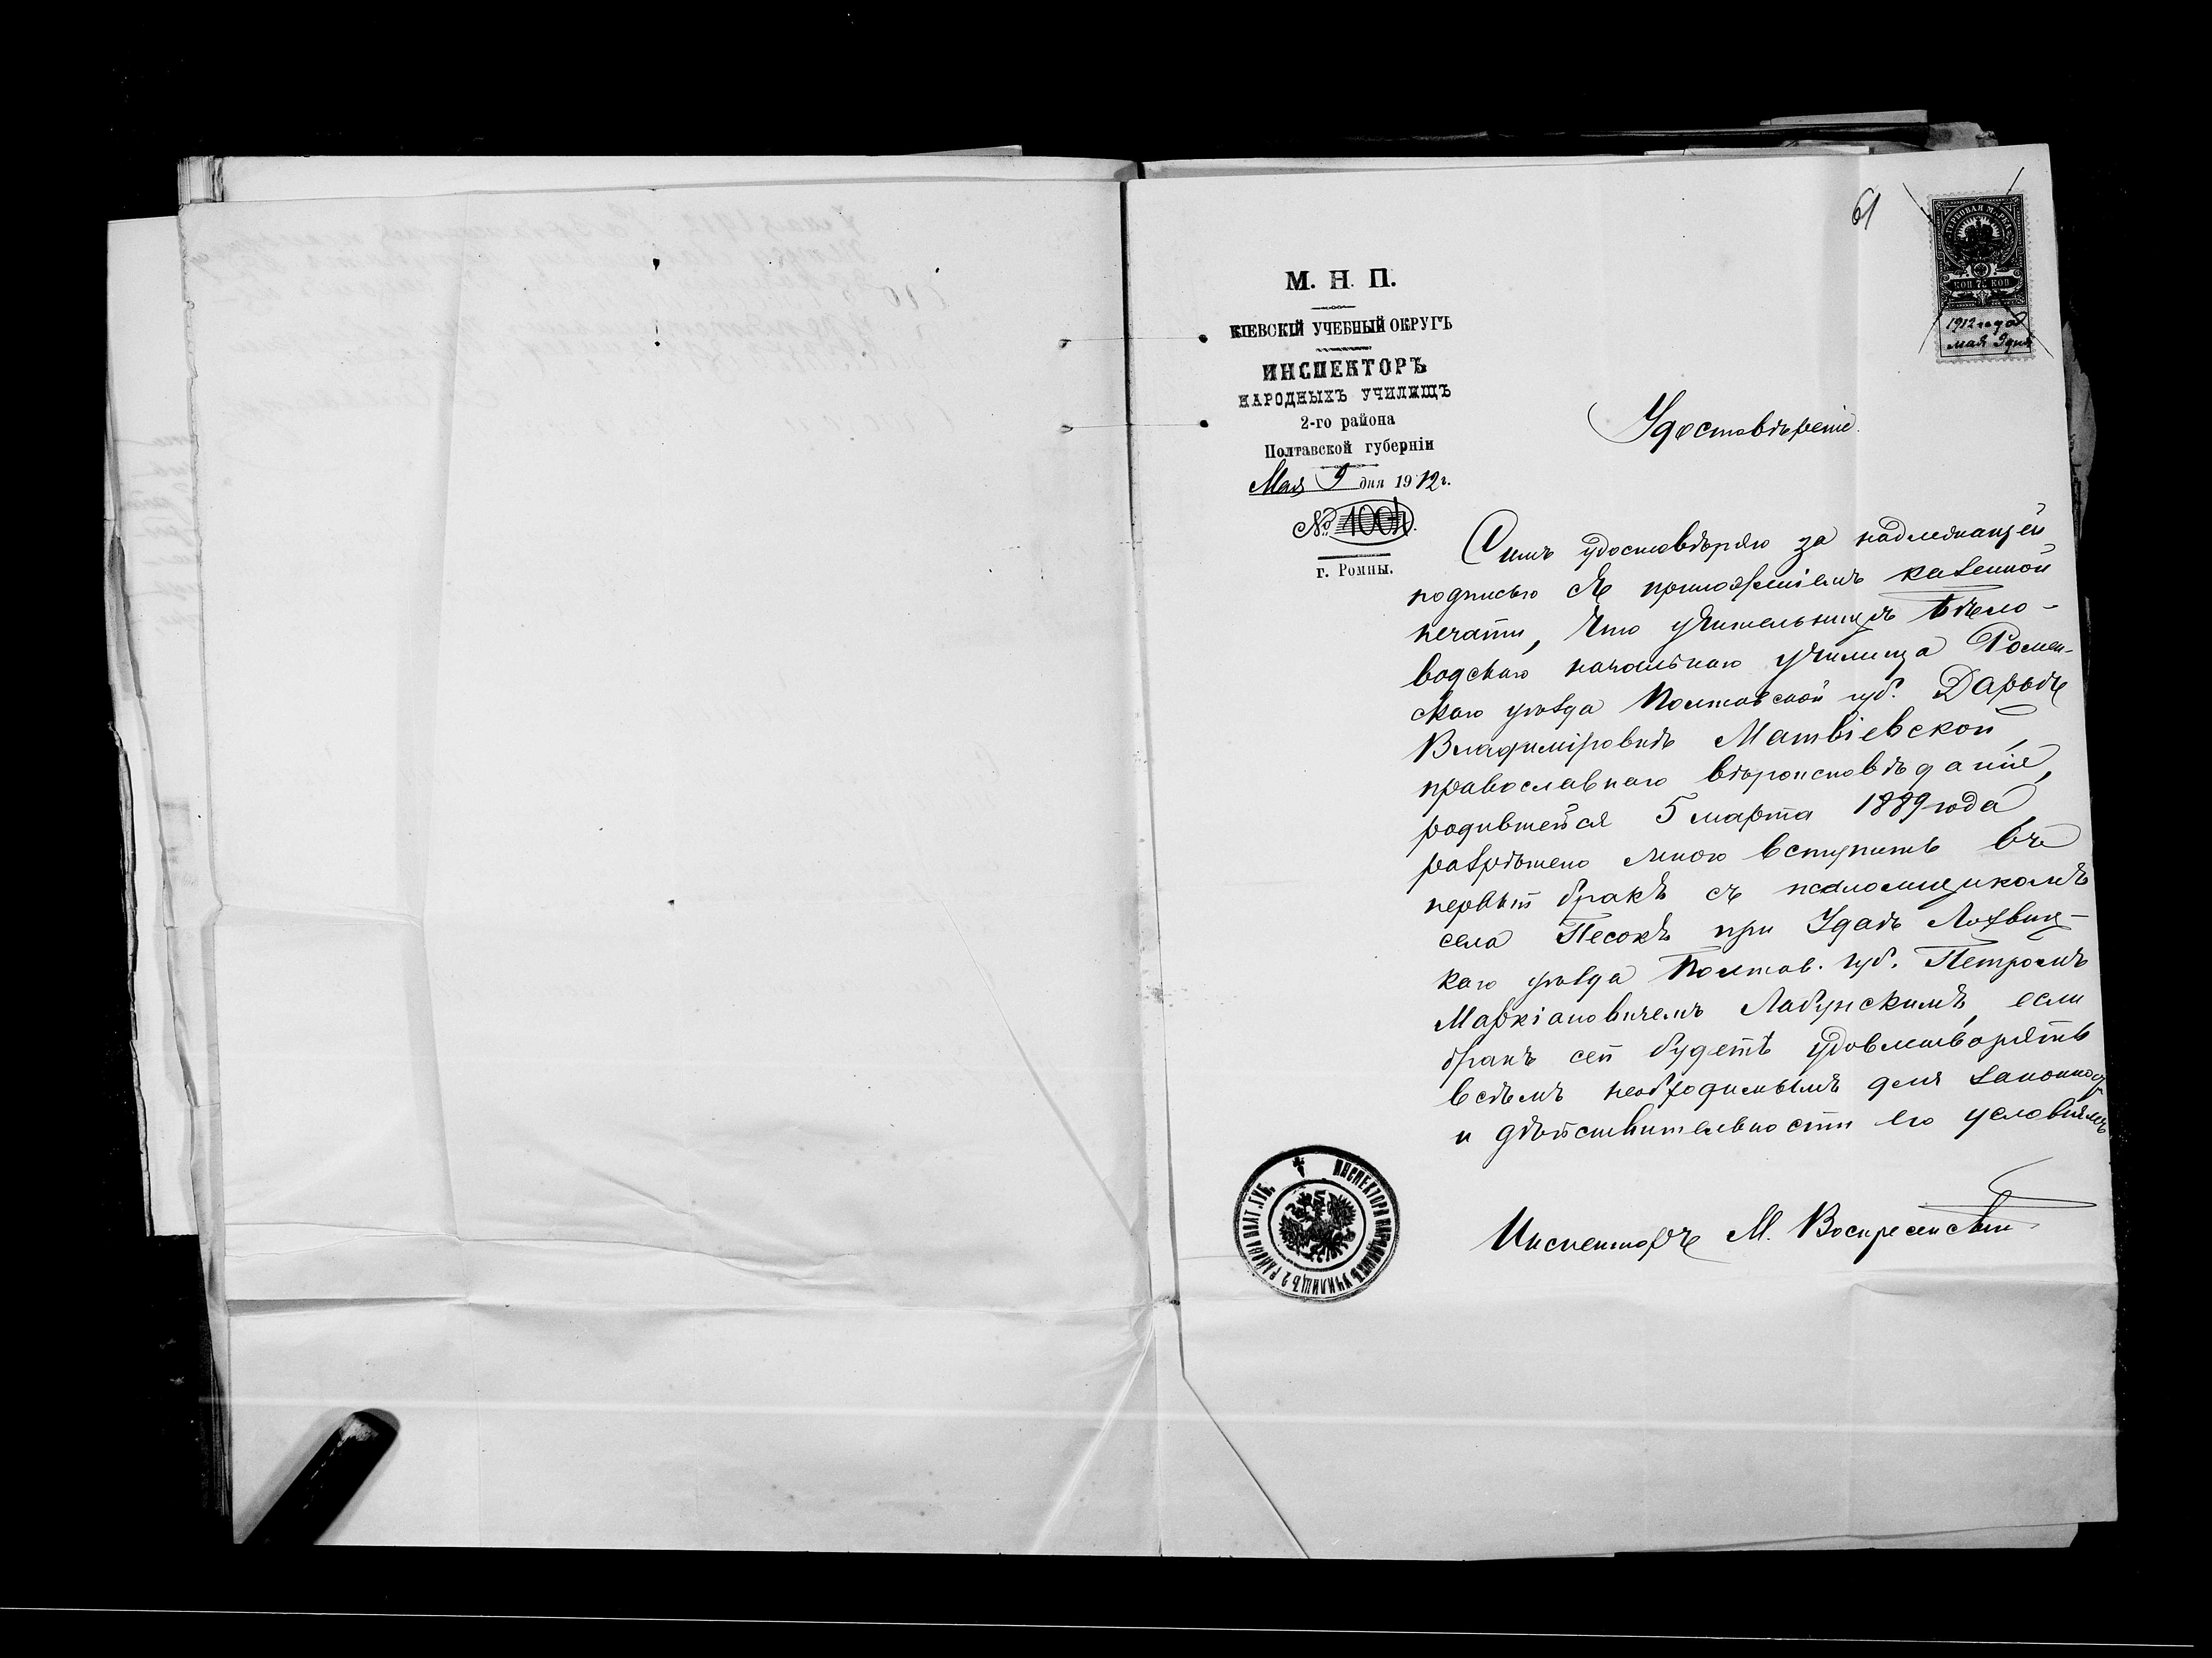 61
ГЕРБОВАЯ МАРКА
КОП 75 КОП
1912 года
мая 9 дня
М. Н. П.
КІЕВСКІЙ УЧЕБНЫЙ ОКРУГЪ
ИНСПЕКТОРЪ
НАРОДНЫХЪ УЧИЛИЩЪ
2-го района
Полтавской губерніи
Мая 9 дня 1912 г.
№ 1004.
г. Ромны.
Удостовѣреніе.
Симъ удостовѣряю за надлежащей
подписью съ приложеніемъ казенной
печати, что учительницѣ Бѣло-
водскаго начальнаго училища Ромен-
скаго уѣзда Полтавской губ. Дарьѣ
Владиміровнѣ Матвіевской,
православнаго вѣроисповѣданія,
родившейся 5 марта 1889 года,
разрѣшено мною вступить въ
первый бракъ съ псаломщикомъ
села Песокъ при Удаѣ Лохвиц-
каго уѣзда Полтав. губ. Петромъ
Маркіановичемъ Лабунскимъ, если
бракъ сей будетъ удовлетворять
всѣмъ необходимымъ для законности
и дѣйствительности его условіямъ
Инспекторъ М. Воскресенскій
ИНСПЕКТОРА НАРОДНЫХЪ УЧИЛИЩЪ 2 РАЙОНА ПОЛТ. ГУБ.